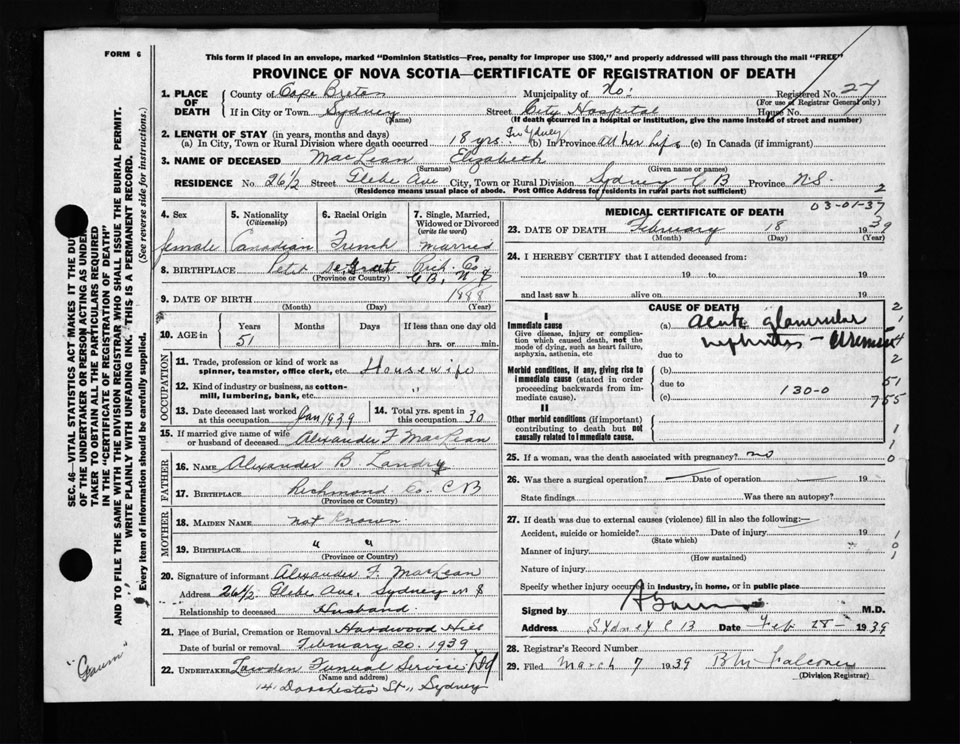 FORM 6
This form if placed in an envelope, marked "Dominion Statistics—Free, penalty for improper use $300," and properly addressed will pass through the mail "FREE"
PROVINCE OF NOVA SCOTIA—CERTIFICATE OF REGISTRATION OF DEATH
SEC. 46—VITAL STATISTICS ACT MAKES IT THE DUTY
OF THE UNDERTAKER OR PERSON ACTING AS UNDER-
TAKER TO OBTAIN ALL THE PARTICULARS REQUIRED
IN THE "CERTIFICATE OF REGISTRATION OF DEATH"
AND TO FILE THE SAME WITH THE DIVISION REGISTRAR WHO SHALL ISSUE THE BURIAL PERMIT.
WRITE PLAINLY WITH UNFADING INK. THIS IS A PERMANENT RECORD.
Every item of information should be carefully supplied. (See reverse side for instructions.)
"Gaum"
1. PLACE OF DEATH
County of Cape Breton Municipality of No: Registered No. 27
(For use of Registrar General only)
If in City or Town Sydney Street City Hospital House No.
(Name) (If death occurred in a hospital or institution, give the name instead of street and number)
2. LENGTH OF STAY (in years, months and days)
(a) In City, Town or Rural Division where death occurred 18 yrs. In Sydney (b) In Province All her life (c) In Canada (if immigrant)
3. NAME OF DECEASED MacLean Elizabeth
(Surname) (Given name or names)
RESIDENCE No 26½ Street Glebe Ave City, Town or Rural Division Sydney C B Province N.S. 2
(Residence means usual place of abode. Post Office Address for residents in rural parts not sufficient)
4. Sex 5. Nationality (Citizenship) 6. Racial Origin 7. Single, Married, Widowed or Divorced (write the word)
female Canadian French Married
8. BIRTHPLACE Petit de Grat Rich. Co C B. N S
(Province or Country)
9. DATE OF BIRTH 1888
(Month) (Day) (Year)
10. AGE in Years Months Days If less than one day
51 hrs. or min.
OCCUPATION
11. Trade, profession or kind of work as
spinner, teamster, office clerk, etc. Housewife
12. Kind of industry or business, as cotton-
mill, lumbering, bank, etc. "
13. Date deceased last worked at this occupation Jan 1939 14. Total yrs. spent in this occupation 30
15. If married give name of wife
or husband of deceased Alexander F MacLean
FATHER
16. NAME Alexander B Landry
17. BIRTHPLACE Richmond Co. C B
(Province or Country)
MOTHER
18. MAIDEN NAME not Known.
19. BIRTHPLACE " "
(Province or Country)
20. Signature of informant Alexander F. MacLean
Address 26½ Glebe Ave. Sydney N S
Relationship to deceased Husband
21. Place of Burial, Cremation or Removal Hardwood Hill
Date of burial or removal February 20. 1939
22. UNDERTAKER Lawden Funeral Service Ltd
(Name and address)
141 Dorchester St., Sydney
MEDICAL CERTIFICATE OF DEATH 03-01-37
23. DATE OF DEATH February 18 1939
(Month) (Day) (Year)
24. I HEREBY CERTIFY that I attended deceased from:
19 to 19
and last saw h alive on 19
CAUSE OF DEATH
I
Immediate cause
Give disease, injury or complica-
tion which caused death, not the
mode of dying, such as heart failure,
asphyxia, asthenia, etc
(a) Acute glomerular
nephritis - Uremia
due to
Morbid conditions, if any, giving rise to
immediate cause (stated in order
proceeding backwards from im-
mediate cause).
(b)
due to
(c) 130-0
II
Other morbid conditions (if important)
contributing to death but not
causally related to immediate cause.
25. If a woman, was the death associated with pregnancy? no
26. Was there a surgical operation? Date of operation 19
State findings Was there an autopsy?
27. If death was due to external causes (violence) fill in also the following:—
Accident, suicide or homicide? Date of injury 19
(State which)
Manner of injury
(How sustained)
Nature of injury
Specify whether injury occurred in industry, in home, or in public place
Signed by M.D.
Address Sydney C B Date Feb 28 1939
28. Registrar's Record Number
29. Filed March 7 1939 B M Falconer
(Division Registrar)